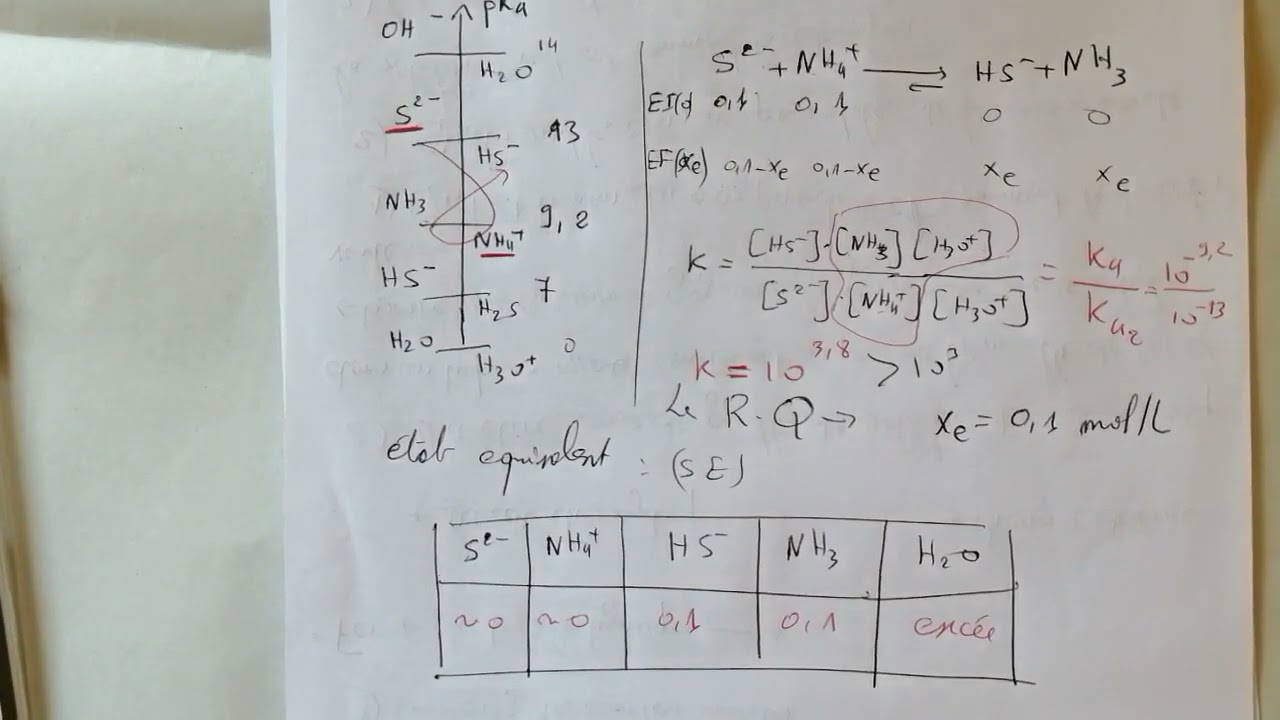 pka
OH⁻
14
H₂O
S²⁻
13
HS⁻
NH₃
9,2
NH₄⁺
HS⁻
7
H₂S
H₂O
0
H₃O⁺
S²⁻ + NH₄⁺ ⇌ HS⁻ + NH₃
0,1 0,1 0 0
EF(xe) 0,1-xe 0,1-xe xe xe
K = [HS⁻]·[NH₃] [H₃O⁺] / [S²⁻]·[NH₄⁺] [H₃O⁺] = Ka / Ka₂ = 10⁻⁹,² / 10⁻¹³
K = 10³,⁸ > 10³
Le R.Q → xe = 0,1 mol/L
état equivalent : (SE)
S²⁻ NH₄⁺ HS⁻ NH₃ H₂O
~0 ~0 0,1 0,1